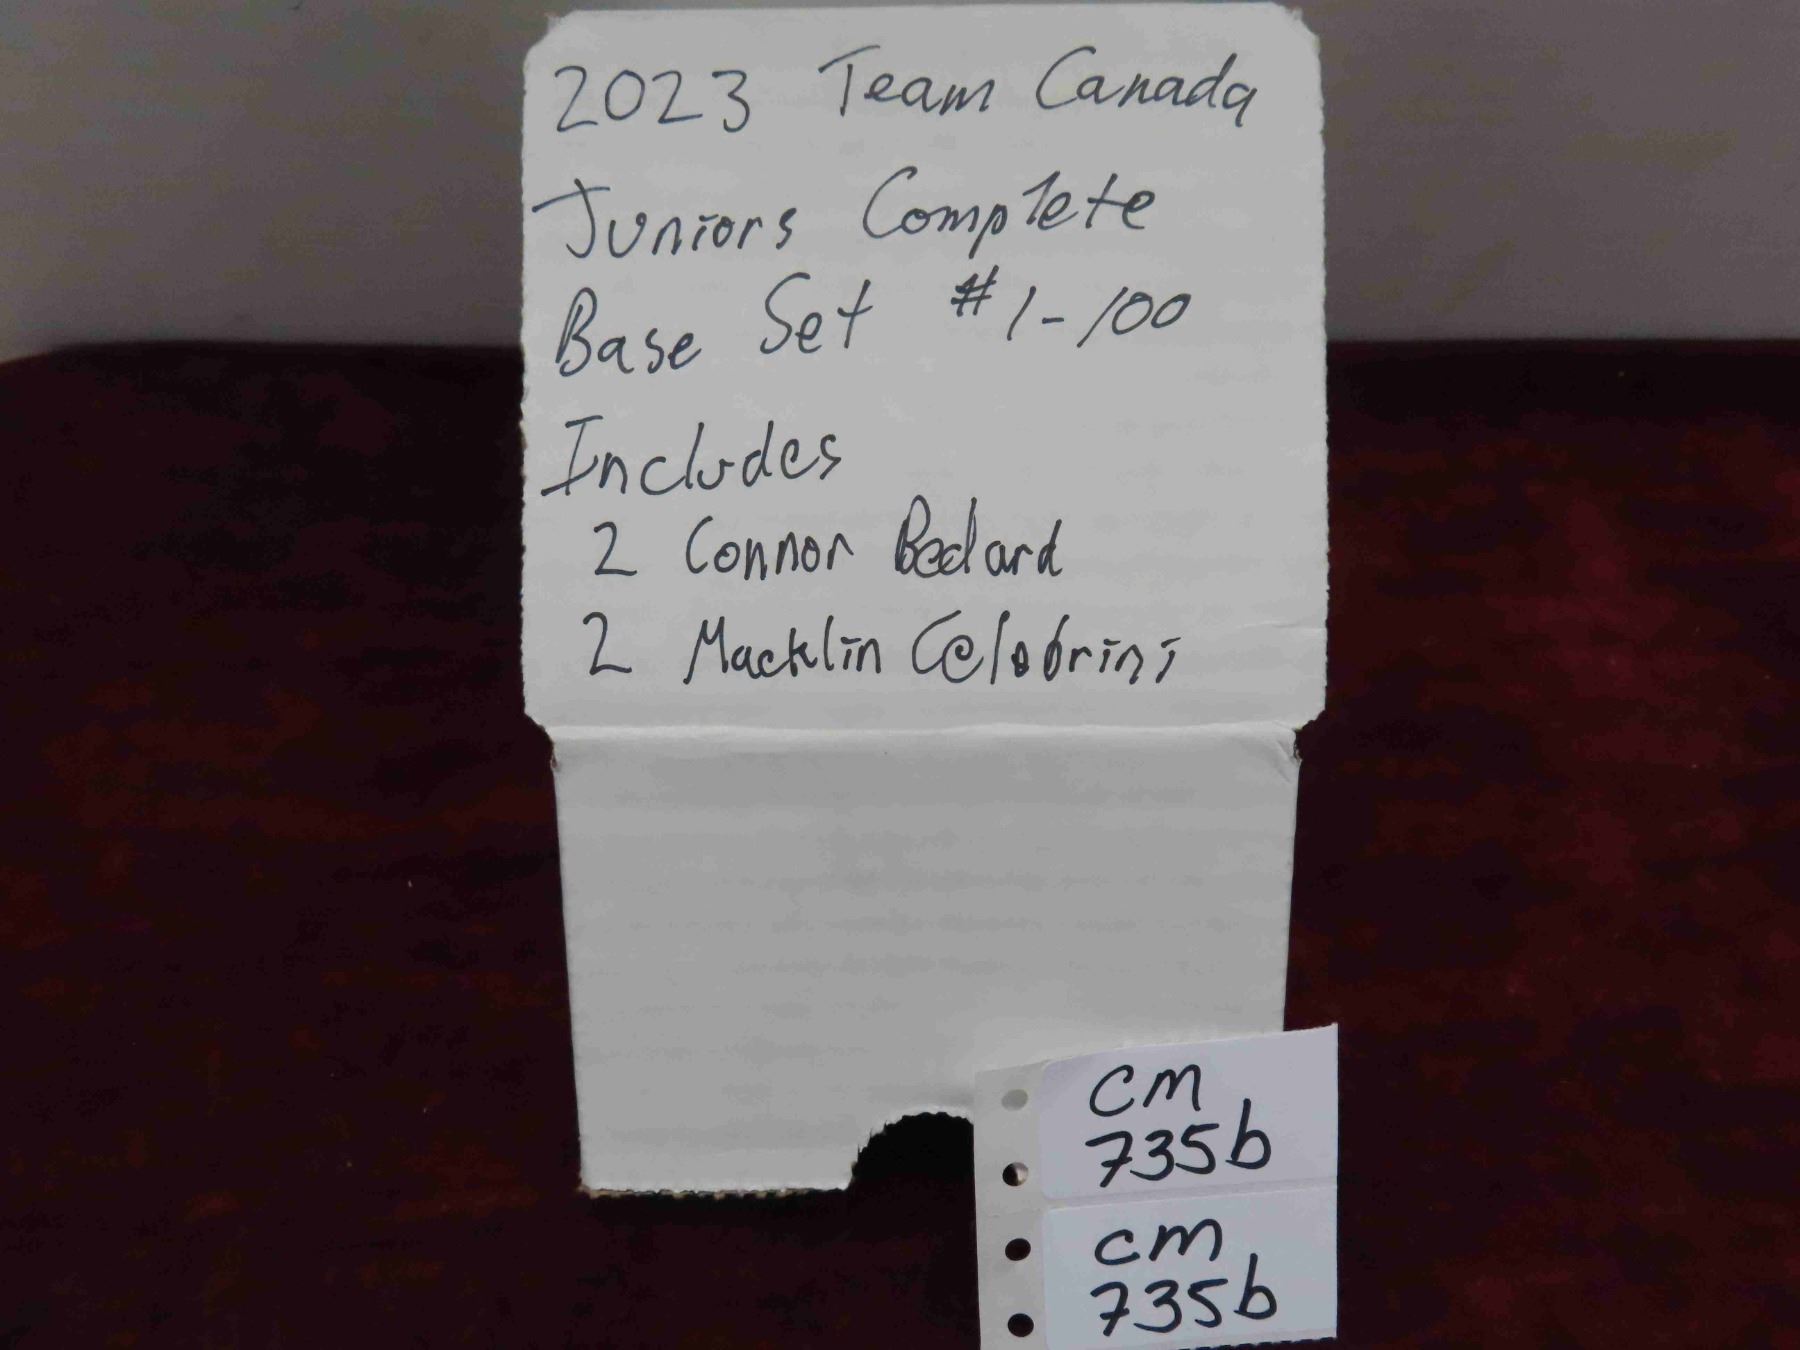 2023 Team Canada
Juniors Complete
Base Set #1-100
Includes
2 Connor Bedard
2 Macklin Celebrini
cm
735b
cm
735b